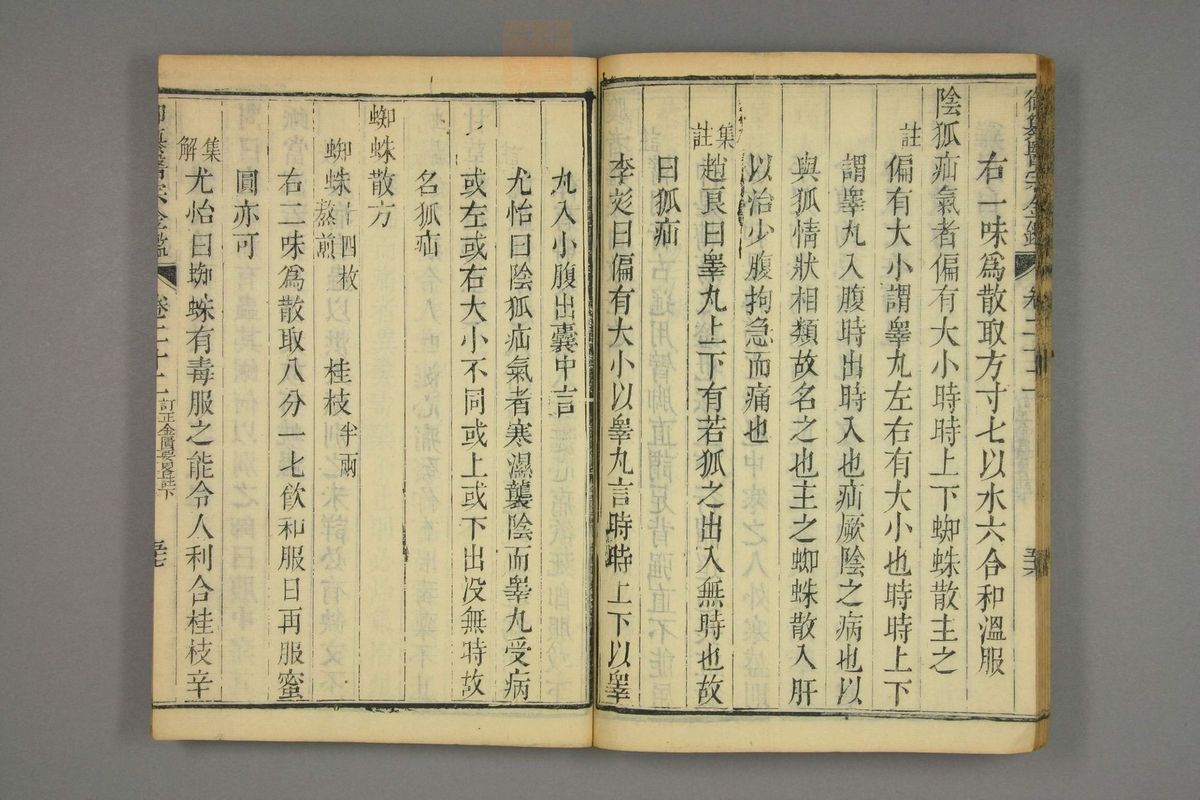 御纂醫宗金鑑 卷二十二
右一味爲散取方寸七以水六合和溫服
陰狐疝氣者偏有大小時時上下蜘蛛散主之
註 偏有大小謂睾丸左右有大小也時時上下
謂睾丸入腹時出時入也疝厥陰之病也以
與狐情狀相類故名之也主之蜘蛛散入肝
以治少腹拘急而痛也
集註 趙良曰睾丸上下有若狐之出入無時也故
曰狐疝
李彣曰偏有大小以睾丸言時時上下以睾
丸入小腹出囊中言
尤怡曰陰狐疝氣者寒濕襲陰而睾丸受病
或左或右大小不同或上或下出没無時故
名狐疝
蜘蛛散方
蜘蛛 十四枚熬煎 桂枝 半兩
右二味爲散取八分一七飲和服日再服蜜
圓亦可
集解 尤怡曰蜘蛛有毒服之能令人利合桂枝辛
御纂醫宗金鑑 卷二十二 訂正金匱要畧註下